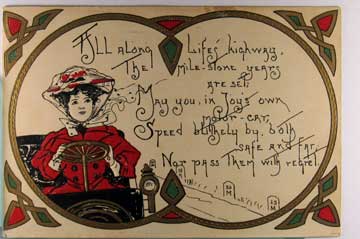 All along Lifes highway.
The mile-stone years
are set;
May you, in Joy's own
motor-car,
Speed blithely by, both
safe and far,
Nor pass them with regret.